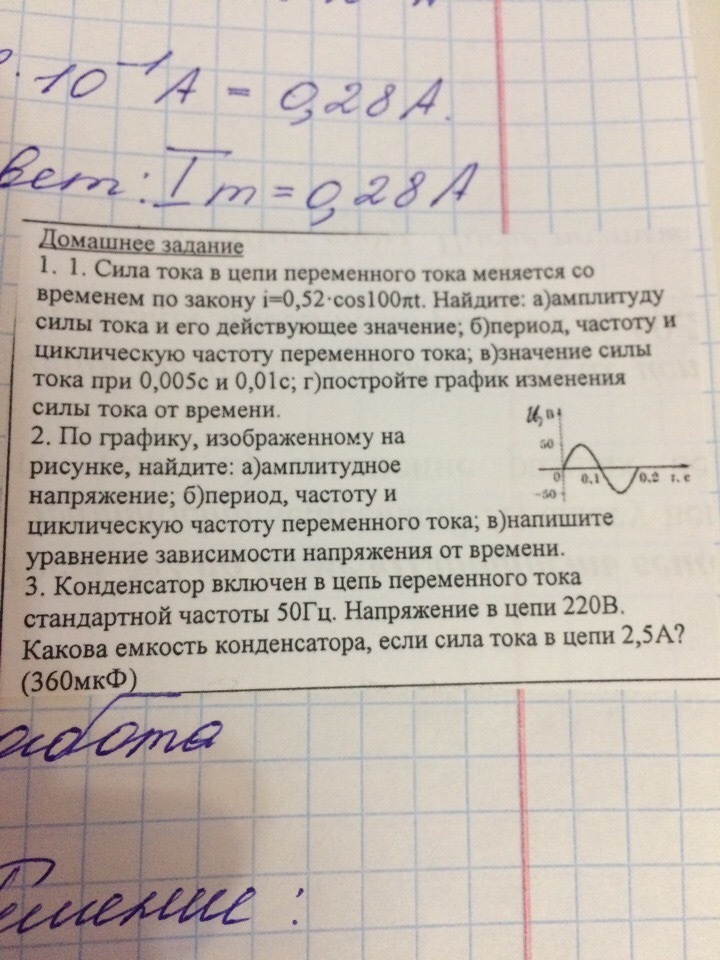 10⁻¹ A = 0,28 A.
вет: Im = 0,28 A
Домашнее задание
1. 1. Сила тока в цепи переменного тока меняется со
временем по закону i=0,52·cos100πt. Найдите: а)амплитуду
силы тока и его действующее значение; б)период, частоту и
циклическую частоту переменного тока; в)значение силы
тока при 0,005с и 0,01с; г)постройте график изменения
силы тока от времени.
2. По графику, изображенному на
рисунке, найдите: а)амплитудное
напряжение; б)период, частоту и
циклическую частоту переменного тока; в)напишите
уравнение зависимости напряжения от времени.
U, В
50
0 0.1 0.2 t, с
-50
3. Конденсатор включен в цепь переменного тока
стандартной частоты 50Гц. Напряжение в цепи 220В.
Какова емкость конденсатора, если сила тока в цепи 2,5А?
(360мкФ)
абота
ешение: